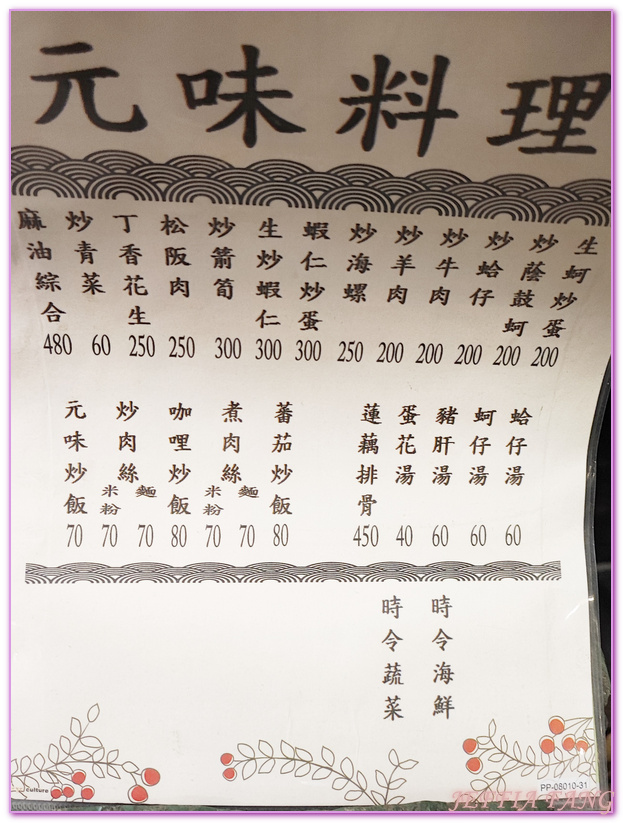 元味料理
生蚵炒蛋
炒蔭鼓蚵 200
炒蛤仔 200
炒牛肉 200
炒羊肉 200
炒海螺 250
蝦仁炒蛋 300
生炒蝦仁 300
炒箭筍 300
松阪肉 250
丁香花生 250
炒青菜 60
麻油綜合 480
蛤仔湯 60
蚵仔湯 60
豬肝湯 60
蛋花湯 40
蓮藕排骨 450
蕃茄炒飯 80
煮肉絲 麵 70 米粉 70
咖哩炒飯 80
炒肉絲 麵 70 米粉 70
元味炒飯 70
時令海鮮
時令蔬菜
culture
PP-08010-31
JEFFIA FANG